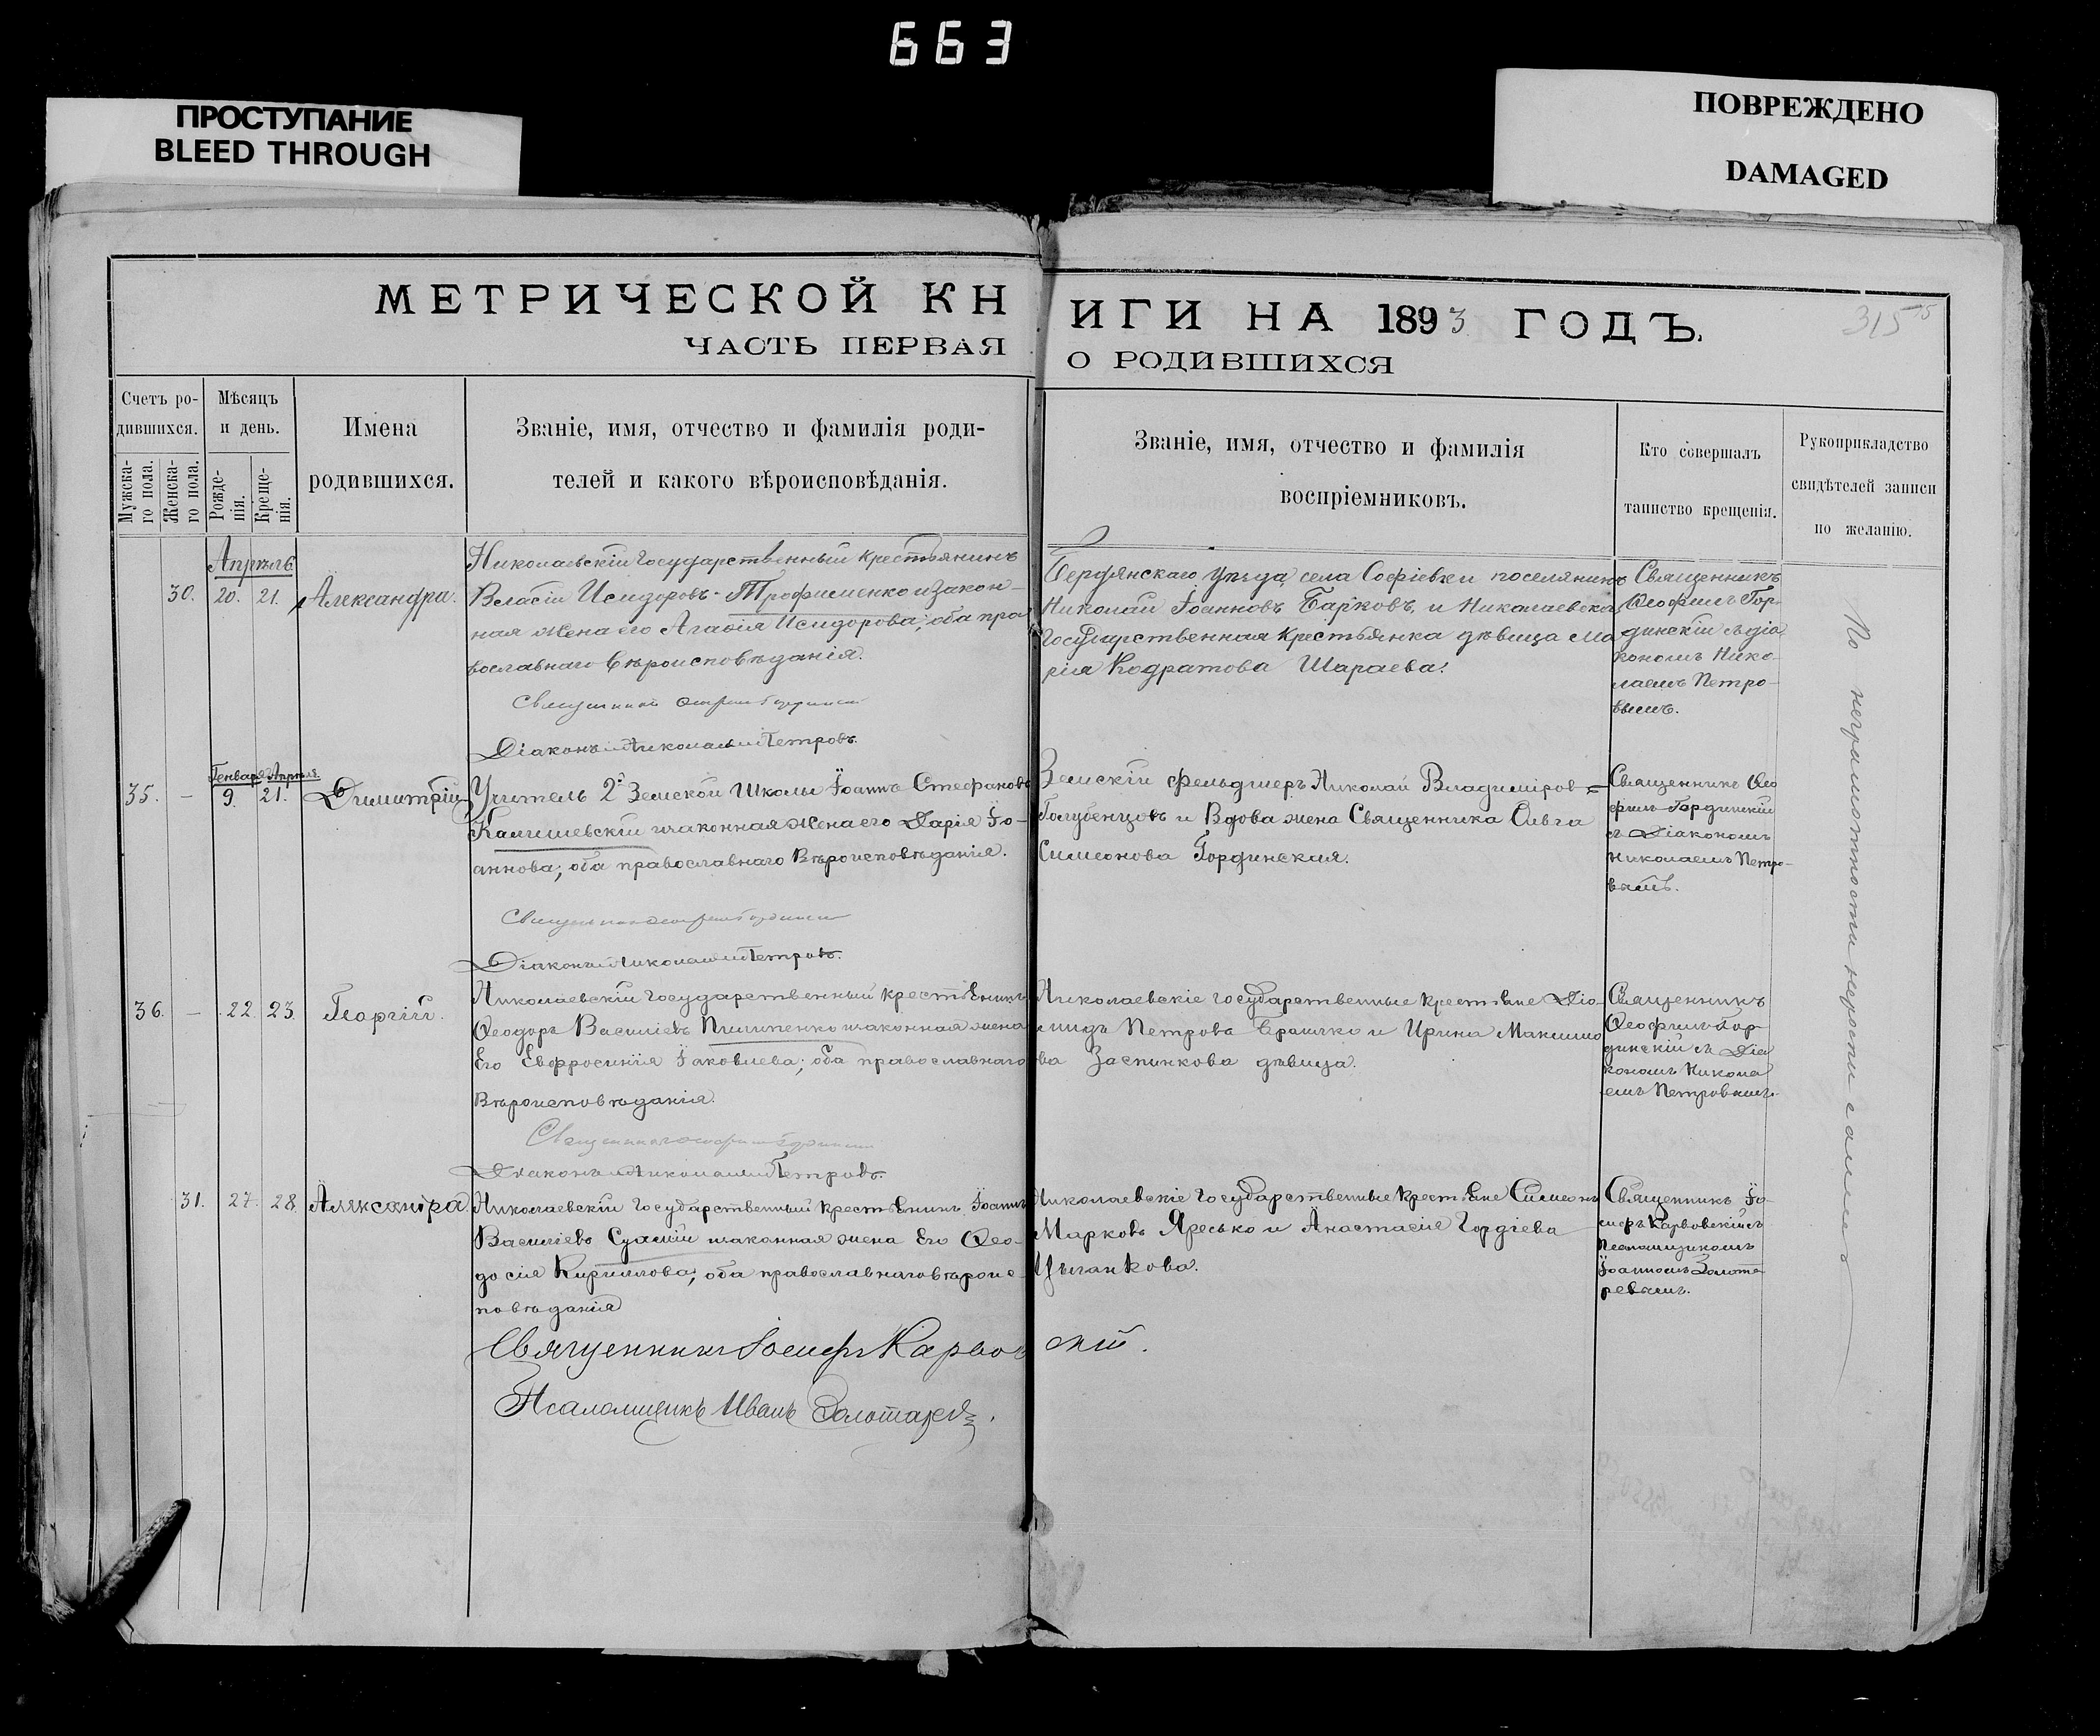 663
ПРОСТУПАНИЕ
BLEED THROUGH
ПОВРЕЖДЕНО
DAMAGED
МЕТРИЧЕСКОЙ КНИГИ НА 1893 ГОДЪ.
315
ЧАСТЬ ПЕРВАЯ О РОДИВШИХСЯ
Счетъ ро-
дившихся.
Мужска-
го пола.
Женска-
го пола.
Мѣсяцъ
и день.
Рожде-
нія.
Креще-
нія.
Имена
родившихся.
Званіе, имя, отчество и фамилія роди-
телей и какого вѣроисповѣданія.
Званіе, имя, отчество и фамилія
воспріемниковъ.
Кто совершалъ
таинство крещенія.
Рукоприкладство
свидѣтелей записи
по желанію.
Апрѣль
30. 20. 21. Александра.
Николаевскій государственный крестьянинъ
Власій Исидоровъ Трофименко и закон-
ная жена его Агафія Исидорова; оба пра
вославнаго вѣроисповѣданія.
Діаконъ Николай Петровъ.
Бердянскаго уѣзда села Софіевки поселянинъ
Николай Іоанновъ Барковъ и Николаевская
государственная крестьянка дѣвица Ма
рія Кодратова Шараева.
Священникъ
Ѳеофилъ Гор-
динскій съ діа
кономъ Нико-
лаемъ Петро-
вымъ.
Генваря Апрѣля
35. – 9. 21. Димитрій
Учитель 2й Земской Школы Іоаннъ Стефановъ
Камишевскій и законная жена его Дарія Іо-
аннова; оба православнаго Вѣроисповѣданія.
Діаконъ Николай Петровъ.
Земскій фельдшеръ Николай Владиміров=
Голубенцовъ и Вдова жена Священника Ольга
Симеонова Гординская.
Священникъ Ѳео
филъ Гординскій
съ Діакономъ
Николаемъ Петро-
вымъ.
36. – 22. 23. Георгій.
Николаевскій государственный крестьянинъ
Ѳеодоръ Василіевъ Пилипенко и законная жена
Его Евфросинія Іаковлева; оба православнаго
Вѣроисповѣданія.
Діаконъ Николай Петровъ.
Николаевскіе государственные крестьяне Діо-
мидъ Петровъ и Ирина Максимо
ва Заспинкова дѣвица.
Священникъ
Ѳеофилъ Гор-
динскій съ Діа
кономъ Никола
емъ Петровымъ.
31. 27. 28. Александра
Николаевскій государственный крестьянинъ Іоаннъ
Василіевъ и законная жена Его Ѳео-
досія Кириллова; оба православнаго вѣроис-
повѣданія
Священникъ Іосифъ Карвовскій.
Псаломщикъ Иванъ Золотаревъ.
Николаевскіе государственные крестьяне Симеонъ
Марковъ Яресько и Анастасія Гордіева
Цыганкова.
Священникъ Іо-
сифъ Карвовскій съ
Псаломщикомъ
Іоанномъ Золота-
ревымъ.
По неграмотности